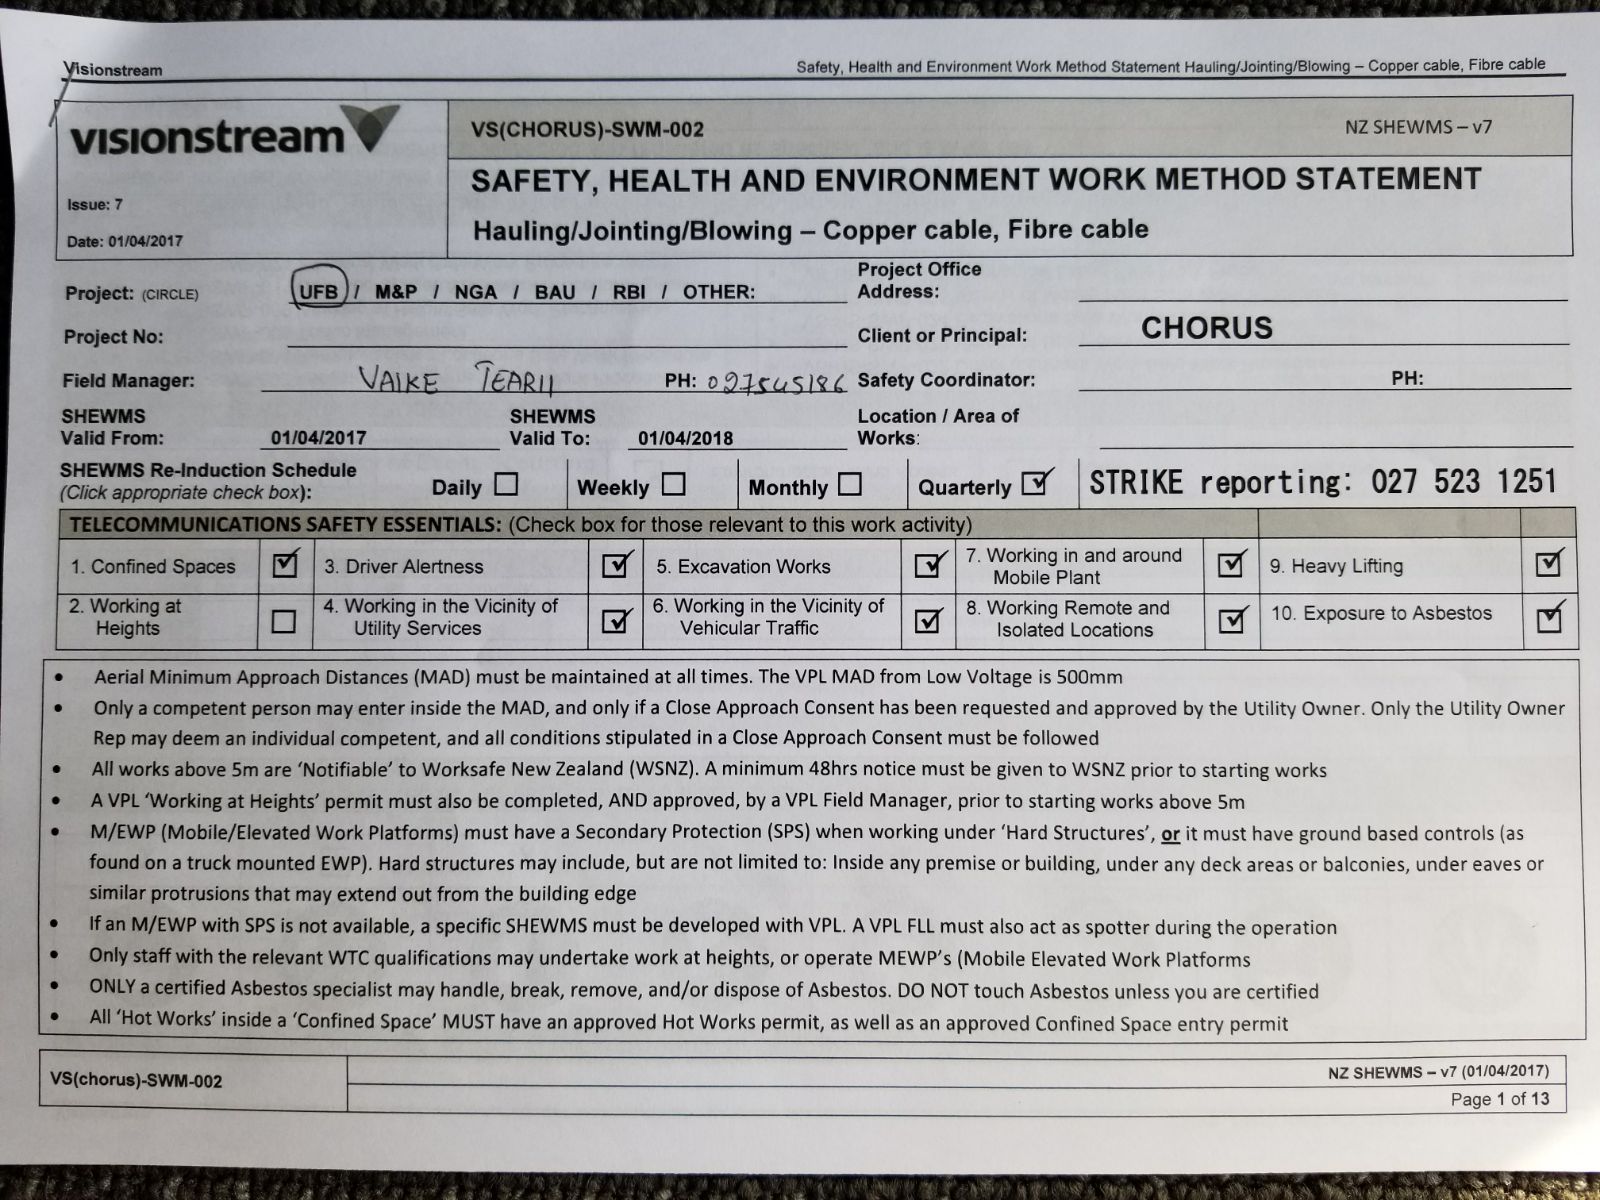 Visionstream
Safety, Health and Environment Work Method Statement Hauling/Jointing/Blowing – Copper cable, Fibre cable
visionstream
Issue: 7
Date: 01/04/2017
VS(CHORUS)-SWM-002
NZ SHEWMS – v7
SAFETY, HEALTH AND ENVIRONMENT WORK METHOD STATEMENT
Hauling/Jointing/Blowing – Copper cable, Fibre cable
Project: (CIRCLE) UFB / M&P / NGA / BAU / RBI / OTHER:
Project Office
Address:
Project No:
Client or Principal: CHORUS
Field Manager: VAIKE TEARII PH: 027545186
Safety Coordinator: PH:
SHEWMS
Valid From: 01/04/2017
SHEWMS
Valid To: 01/04/2018
Location / Area of
Works:
SHEWMS Re-Induction Schedule
(Click appropriate check box):
Daily ☐ Weekly ☐ Monthly ☐ Quarterly ☑
STRIKE reporting: 027 523 1251
TELECOMMUNICATIONS SAFETY ESSENTIALS: (Check box for those relevant to this work activity)
1. Confined Spaces ☑
3. Driver Alertness ☑
5. Excavation Works ☑
7. Working in and around
Mobile Plant ☑
9. Heavy Lifting ☑
2. Working at
Heights ☐
4. Working in the Vicinity of
Utility Services ☑
6. Working in the Vicinity of
Vehicular Traffic ☑
8. Working Remote and
Isolated Locations ☑
10. Exposure to Asbestos ☑
• Aerial Minimum Approach Distances (MAD) must be maintained at all times. The VPL MAD from Low Voltage is 500mm
• Only a competent person may enter inside the MAD, and only if a Close Approach Consent has been requested and approved by the Utility Owner. Only the Utility Owner
Rep may deem an individual competent, and all conditions stipulated in a Close Approach Consent must be followed
• All works above 5m are ‘Notifiable’ to Worksafe New Zealand (WSNZ). A minimum 48hrs notice must be given to WSNZ prior to starting works
• A VPL ‘Working at Heights’ permit must also be completed, AND approved, by a VPL Field Manager, prior to starting works above 5m
• M/EWP (Mobile/Elevated Work Platforms) must have a Secondary Protection (SPS) when working under ‘Hard Structures’, or it must have ground based controls (as
found on a truck mounted EWP). Hard structures may include, but are not limited to: Inside any premise or building, under any deck areas or balconies, under eaves or
similar protrusions that may extend out from the building edge
• If an M/EWP with SPS is not available, a specific SHEWMS must be developed with VPL. A VPL FLL must also act as spotter during the operation
• Only staff with the relevant WTC qualifications may undertake work at heights, or operate MEWP’s (Mobile Elevated Work Platforms
• ONLY a certified Asbestos specialist may handle, break, remove, and/or dispose of Asbestos. DO NOT touch Asbestos unless you are certified
• All ‘Hot Works’ inside a ‘Confined Space’ MUST have an approved Hot Works permit, as well as an approved Confined Space entry permit
VS(chorus)-SWM-002
NZ SHEWMS – v7 (01/04/2017)
Page 1 of 13